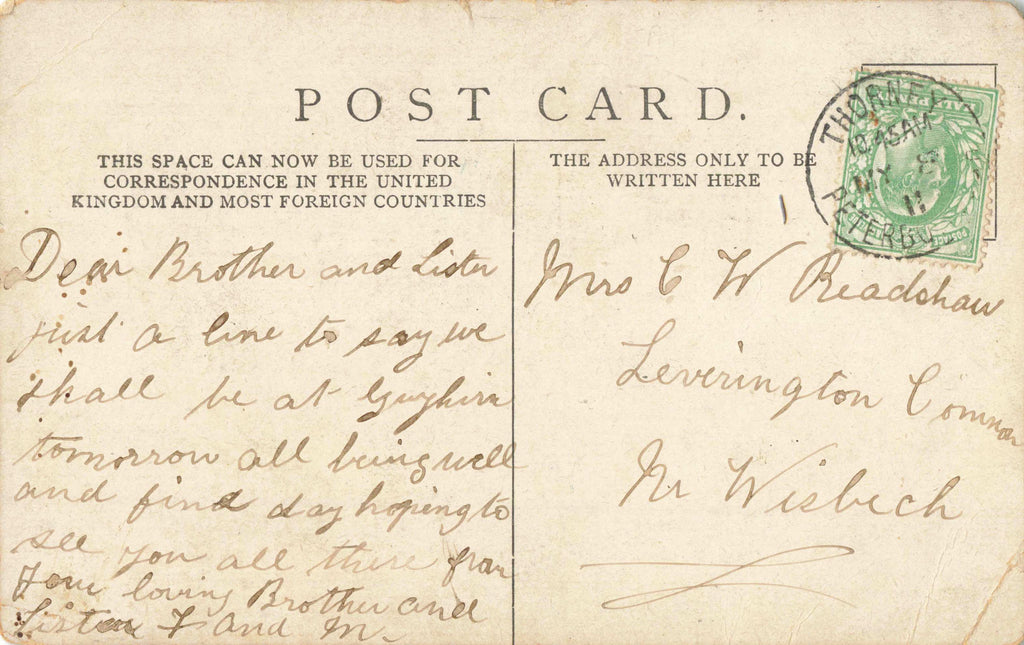 POST CARD.
THIS SPACE CAN NOW BE USED FOR
CORRESPONDENCE IN THE UNITED
KINGDOM AND MOST FOREIGN COUNTRIES
THE ADDRESS ONLY TO BE
WRITTEN HERE
THORNEY
10.45AM
MY 8
11
PETERBO
Dear Brother and Sister
just a line to say we
shall be at Guyhirn
tomorrow all being well
and find day hoping to
see you all there from
Your loving Brother and
Sister F and M.
Mrs C W Readshaw
Leverington Common
Nr Wisbech